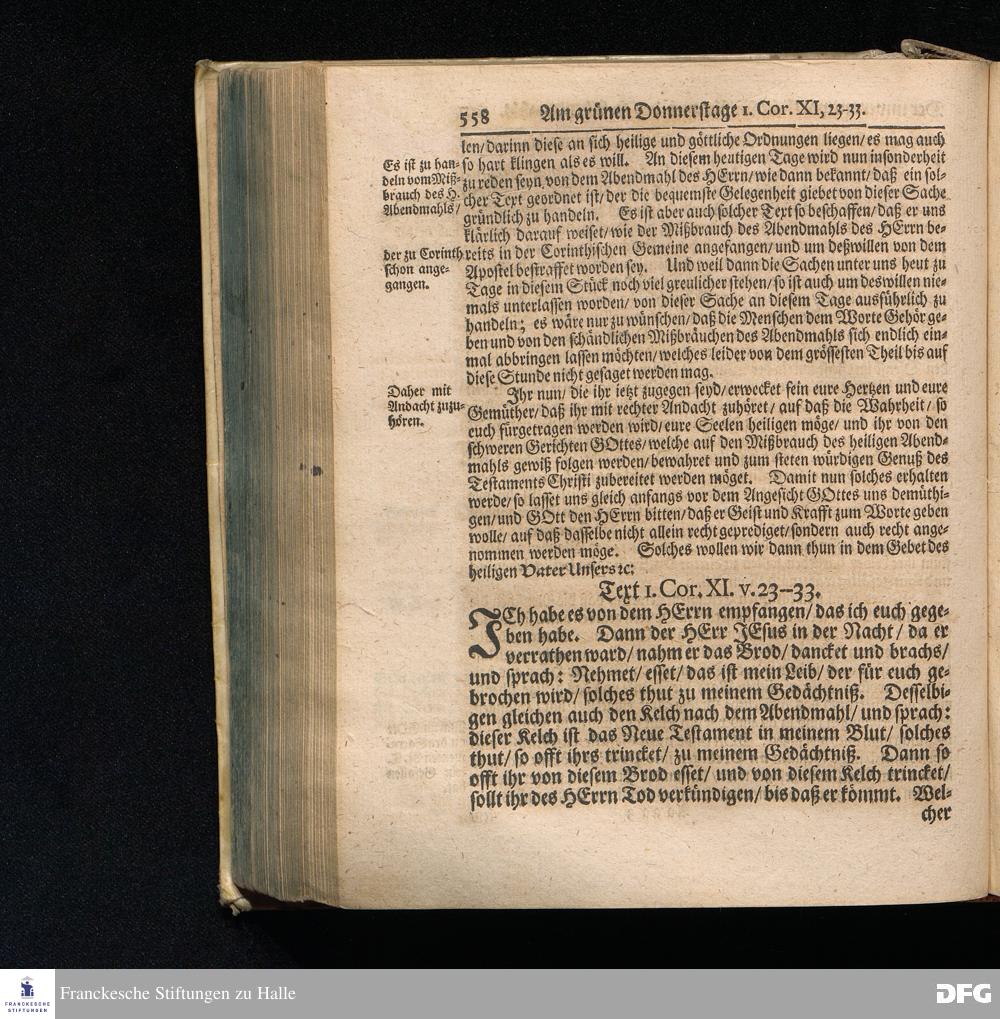 558 Am grünen Donnerstage 1. Cor. XI, 23-33.
len/ darinn diese an sich heilige und göttliche Ordnungen liegen/ es mag auch
so hart klingen als es will. An diesem heutigen Tage wird nun insonderheit
zu reden seyn von dem Abendmahl des HErrn/ wie dann bekannt/ daß ein sol-
cher Text geordnet ist/ der die bequemste Gelegenheit giebet von dieser Sache
gründlich zu handeln. Es ist aber auch solcher Text so beschaffen/ daß er uns
klärlich darauf weiset/ wie der Mißbrauch des Abendmahls des HErrn be-
reits in der Corinthischen Gemeine angefangen/ und um deßwillen von dem
Apostel bestraffet worden sey. Und weil dann die Sachen unter uns heut zu
Tage in diesem Stück noch viel greulicher stehen/ so ist auch um deswillen nie-
mals unterlassen worden/ von dieser Sache an diesem Tage ausführlich zu
handeln; es wäre nur zu wünschen/ daß die Menschen dem Worte Gehör ge-
ben und von den schändlichen Mißbräuchen des Abendmahls sich endlich ein-
mal abbringen lassen möchten/ welches leider von dem grössesten Theil bis auf
diese Stunde nicht gesaget werden mag.
Es ist zu han-
deln vom Miß-
brauch des H.
Abendmahls/
der zu Corinth
schon ange-
gangen.
Ihr nun/ die ihr ietzt zugegen seyd/ erwecket fein eure Hertzen und eure
Gemüther/ daß ihr mit rechter Andacht zuhöret/ auf daß die Wahrheit/ so
euch fürgetragen werden wird/ eure Seelen heiligen möge/ und ihr von den
schweren Gerichten GOttes/ welche auf den Mißbrauch des heiligen Abend-
mahls gewiß folgen werden/ bewahret und zum steten würdigen Genuß des
Testaments Christi zubereitet werden möget. Damit nun solches erhalten
werde/ so lasset uns gleich anfangs vor dem Angesicht GOttes uns demüthi-
gen/ und GOtt den HErrn bitten/ daß er Geist und Krafft zum Worte geben
wolle/ auf daß dasselbe nicht allein recht geprediget/ sondern auch recht ange-
nommen werden möge. Solches wollen wir dann thun in dem Gebet des
heiligen Vater Unsers ꝛc:
Daher mit
Andacht zuzu-
hören.
Text 1. Cor. XI. v. 23--33.
ICh habe es von dem HErrn empfangen/ das ich euch gege-
ben habe. Dann der HErr JEsus in der Nacht/ da er
verrathen ward/ nahm er das Brod/ dancket und brachs/
und sprach: Nehmet/ esset/ das ist mein Leib/ der für euch ge-
brochen wird/ solches thut zu meinem Gedächtniß. Desselbi-
gen gleichen auch den Kelch nach dem Abendmahl/ und sprach:
dieser Kelch ist das Neue Testament in meinem Blut/ solches
thut/ so offt ihrs trincket/ zu meinem Gedächtniß. Dann so
offt ihr von diesem Brod esset/ und von diesem Kelch trincket/
sollt ihr des HErrn Tod verkündigen/ bis daß er kömmt. Wel-
cher
FRANCKESCHE
STIFTUNGEN
Franckesche Stiftungen zu Halle
DFG